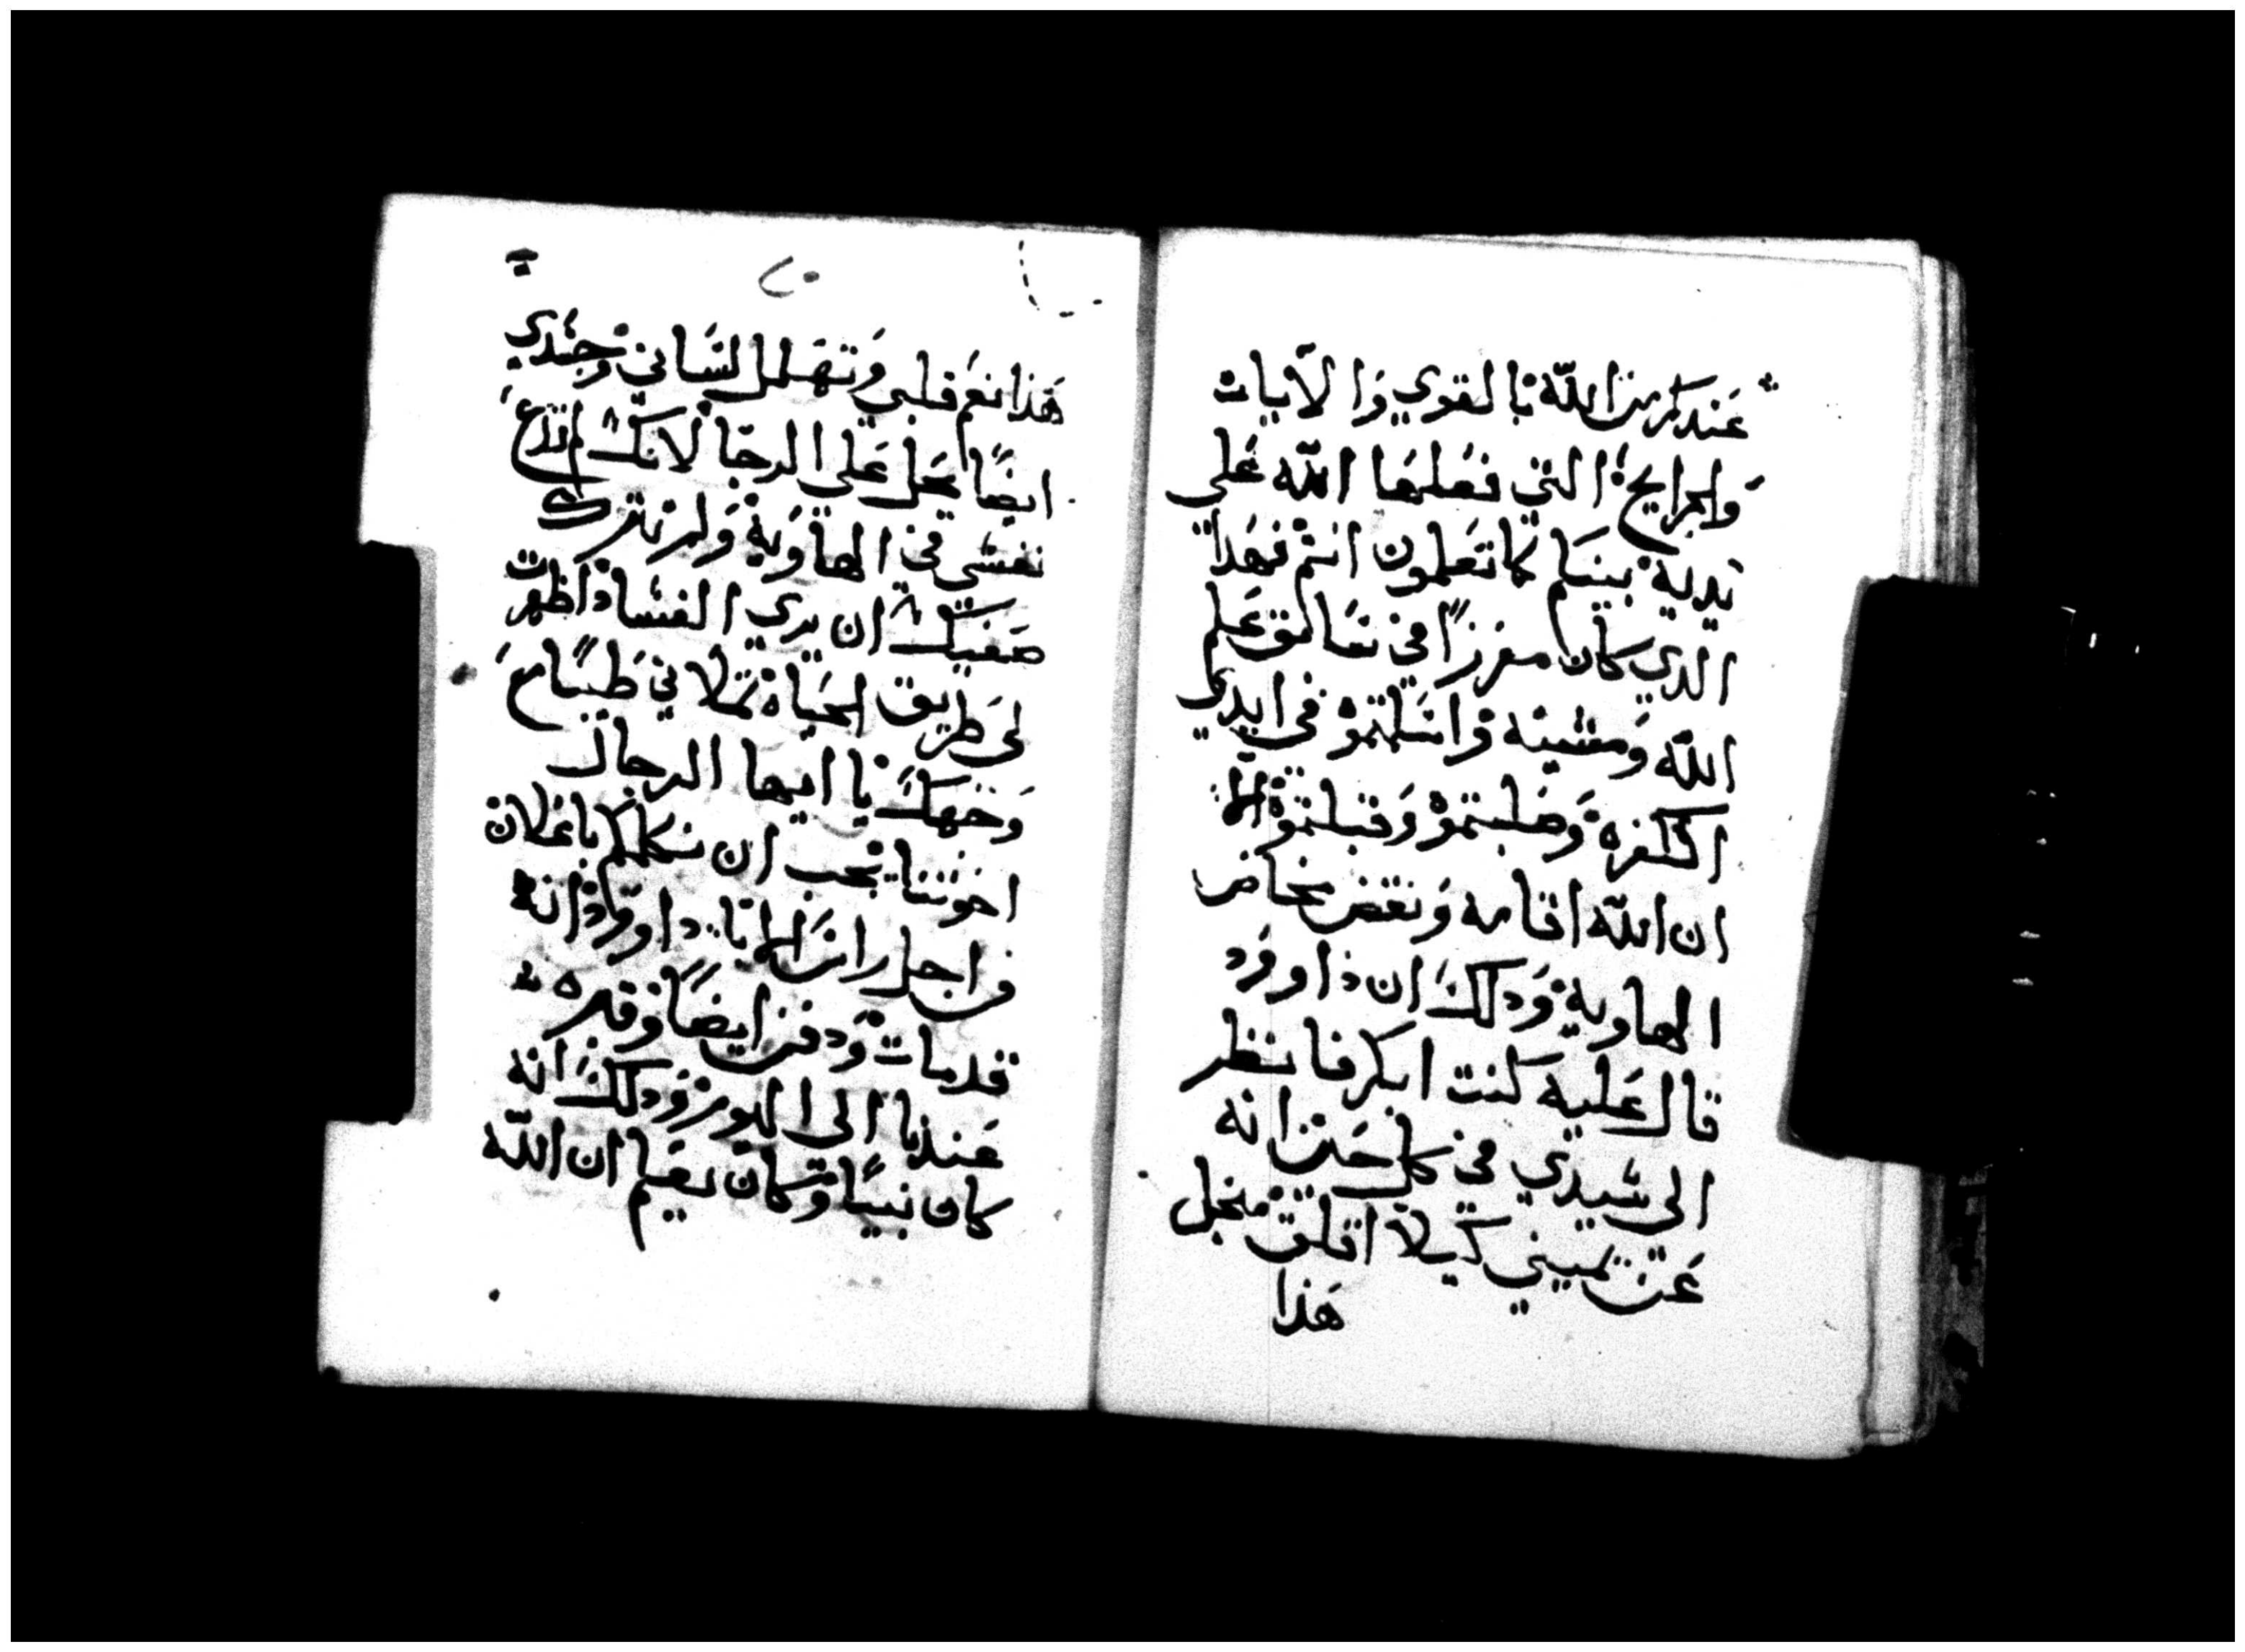 عندكم من الله بالقوي والآيات
والجرايح التي فعلها الله علي
يديه بينكم كما تعلمون انتم فهذا
الدي كان مفرزًا في سابق علم
الله ومشيته واسلمتموه في ايدي
الكفره وصلبتموه وقتلتموه الا
ان الله اقامه ونقض مخاض
الهاويه ودلك ان داوود
قال عليه كنت ابكر فانظر
الي سيدي في كل حين انه
عن يميني كيلا اقلق منجل
هدا
٢٠
هدا نعم قلبي وتهلل لساني وجسدي
ايضًا يحل علي الرجا لانك لم تدع
نفسي في الهاويه ولم تترك
صفيك ان يري الفساد اظهرت
لي طريق الحياه تملاني طيبًا مع
وجهك يا ايها الرجال
اخوتنا يجب ان نكلمكم باعلان
من اجل راس الابا داوود انه
قد مات ودفن ايضًا وقبره
عندنا الي اليوم ودلك انه
كان نبيًا وكان يعلم ان الله